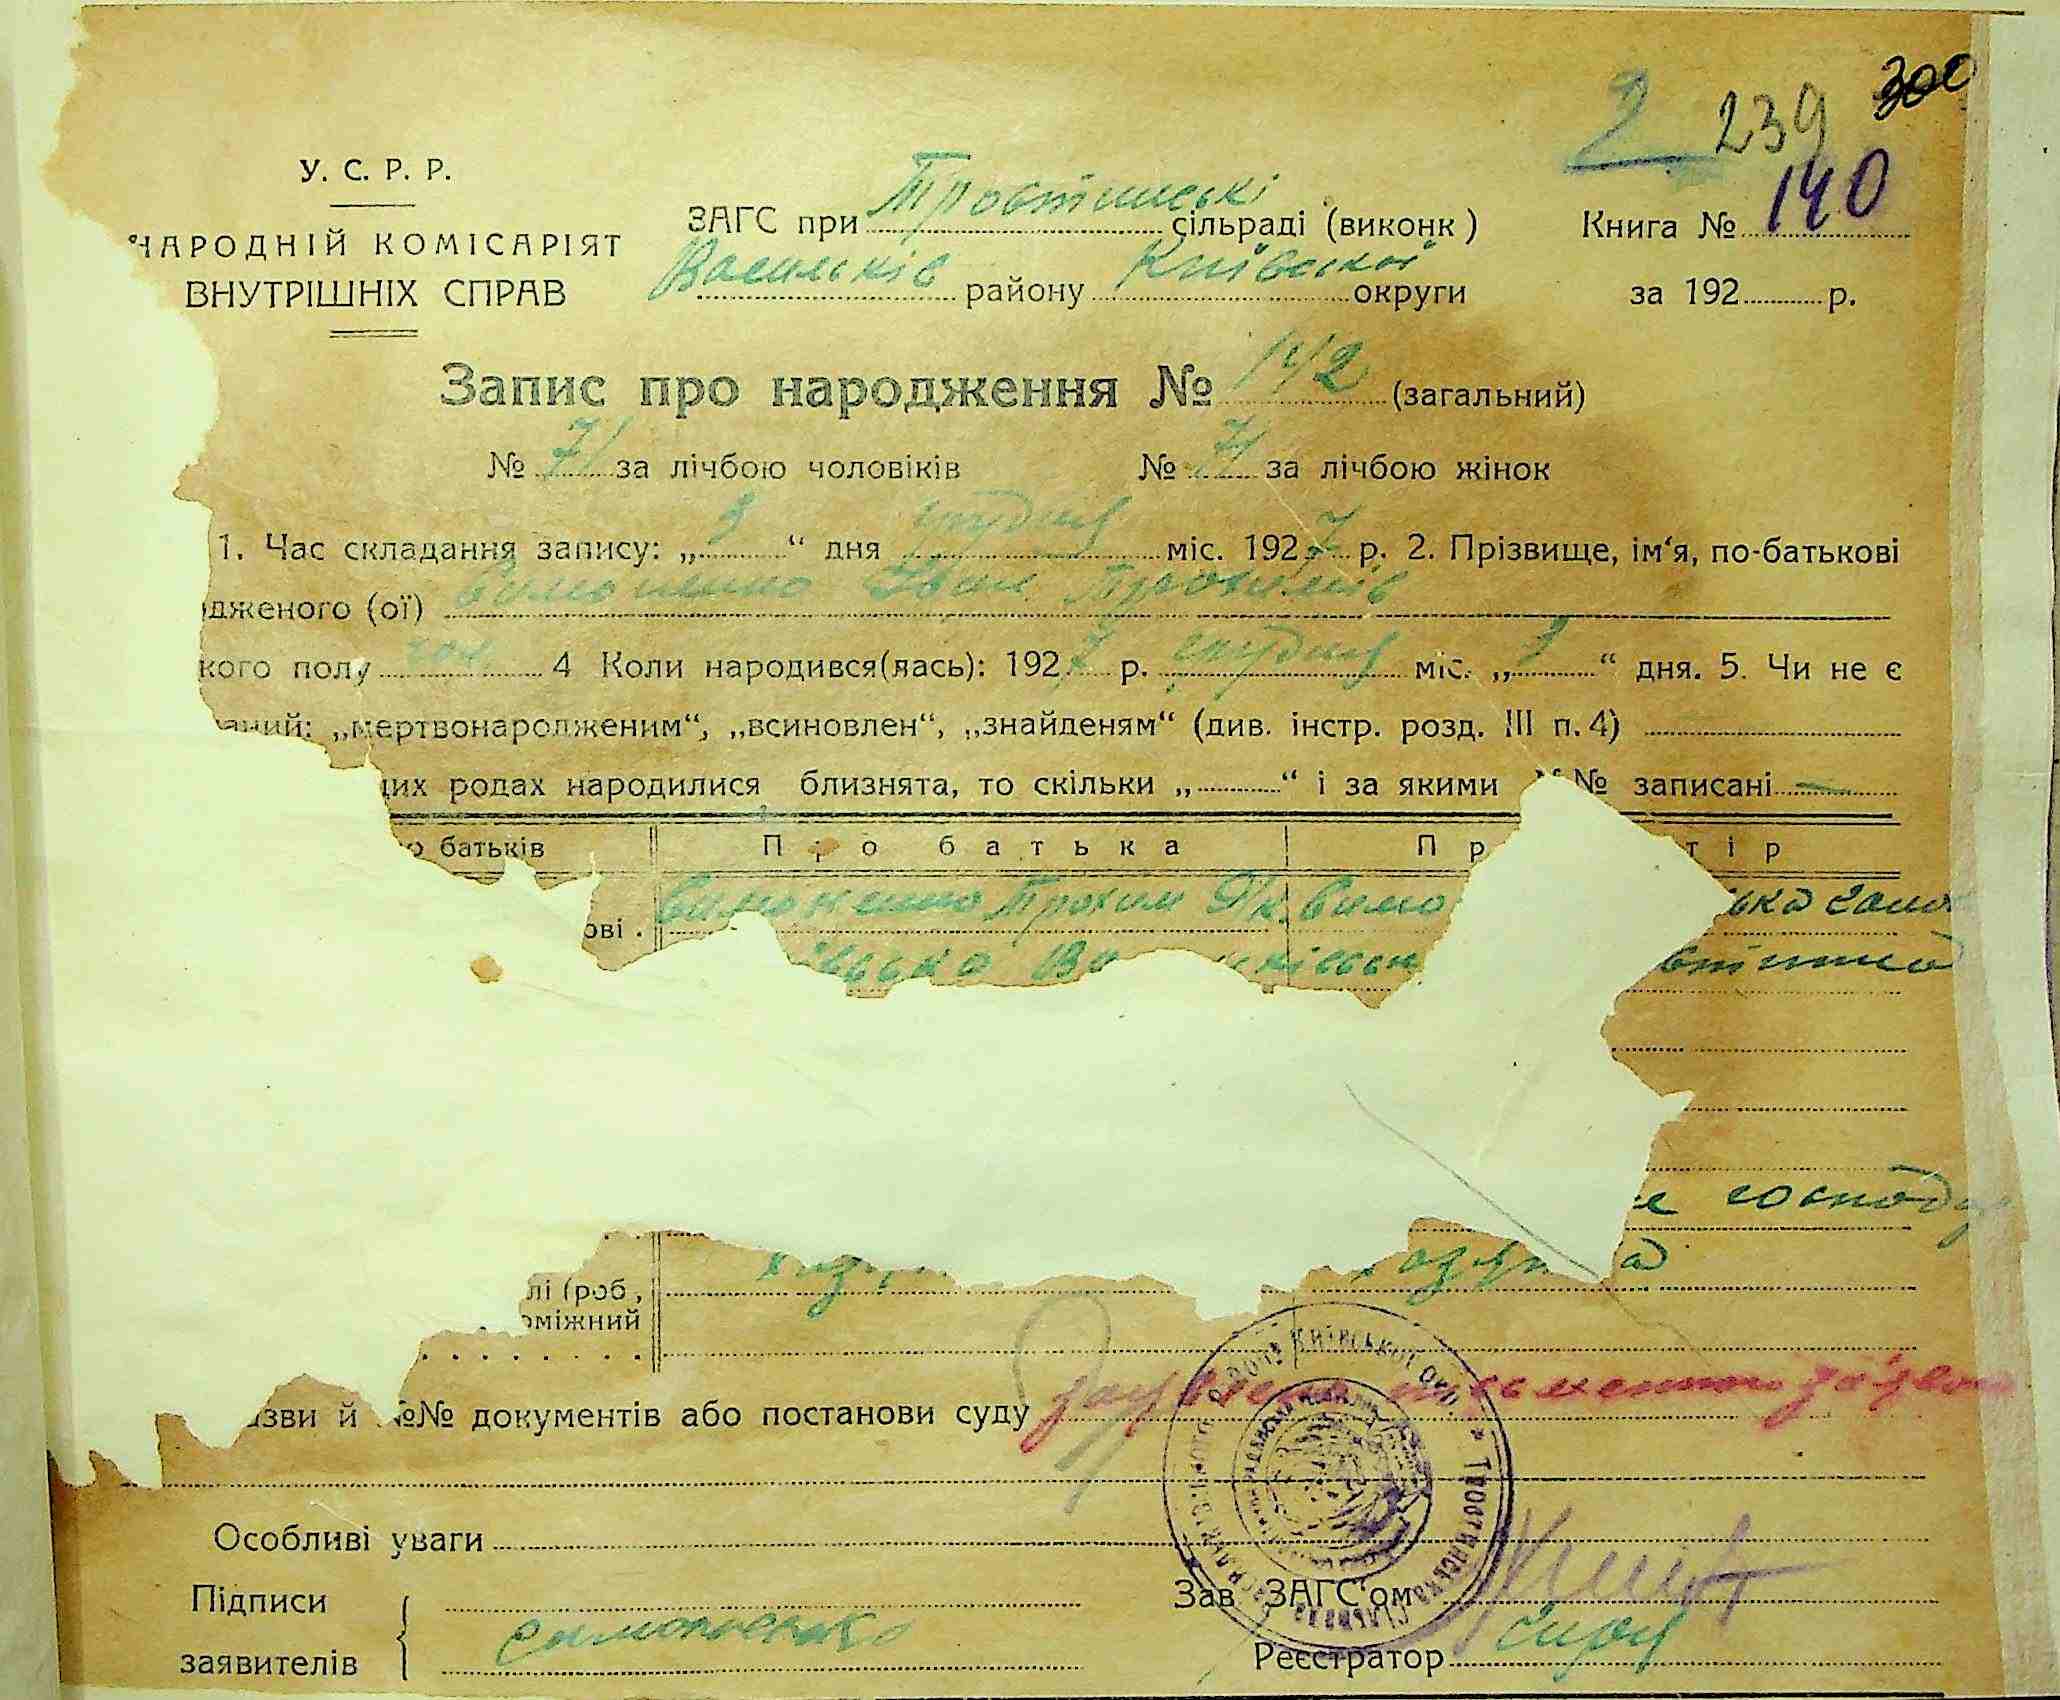 2 239 300
У. С. Р. Р.
НАРОДНІЙ КОМІСАРІЯТ
ВНУТРІШНІХ СПРАВ
ЗАГС при Тростинській сільраді (виконк)
Васильків району Київської округи
Книга № 140
за 192 р.
Запис про народження № 142 (загальний)
№ 71 за лічбою чоловіків № 71 за лічбою жінок
1. Час складання запису: „3“ дня грудня міс. 1927 р. 2. Прізвище, ім‘я, по-батькові
дженого (ої) Симоненко Іван Прохимів
кого полу чол. 4 Коли народився(лась): 1927 р. грудня міс. „3“ дня. 5. Чи не є
аний: „мертвонародженим“, „всиновлен“, „знайденям“ (див. інстр. розд. III п. 4)
цих родах народилися близнята, то скільки „ “ і за якими №№ записані —
о батьків Про батька Пр тір
ові . Симоненко Прохим Симо ська
стинка
е господар
лі (роб,
оміжний
азви й №№ документів або постанови суду
Особливі уваги
Підписи
заявителів
Симоненко
Зав ЗАГС‘ом
Реєстратор
КИЇВСЬКОЇ ОКР. * ТРОСТИНСЬКА СІЛЬСЬКА